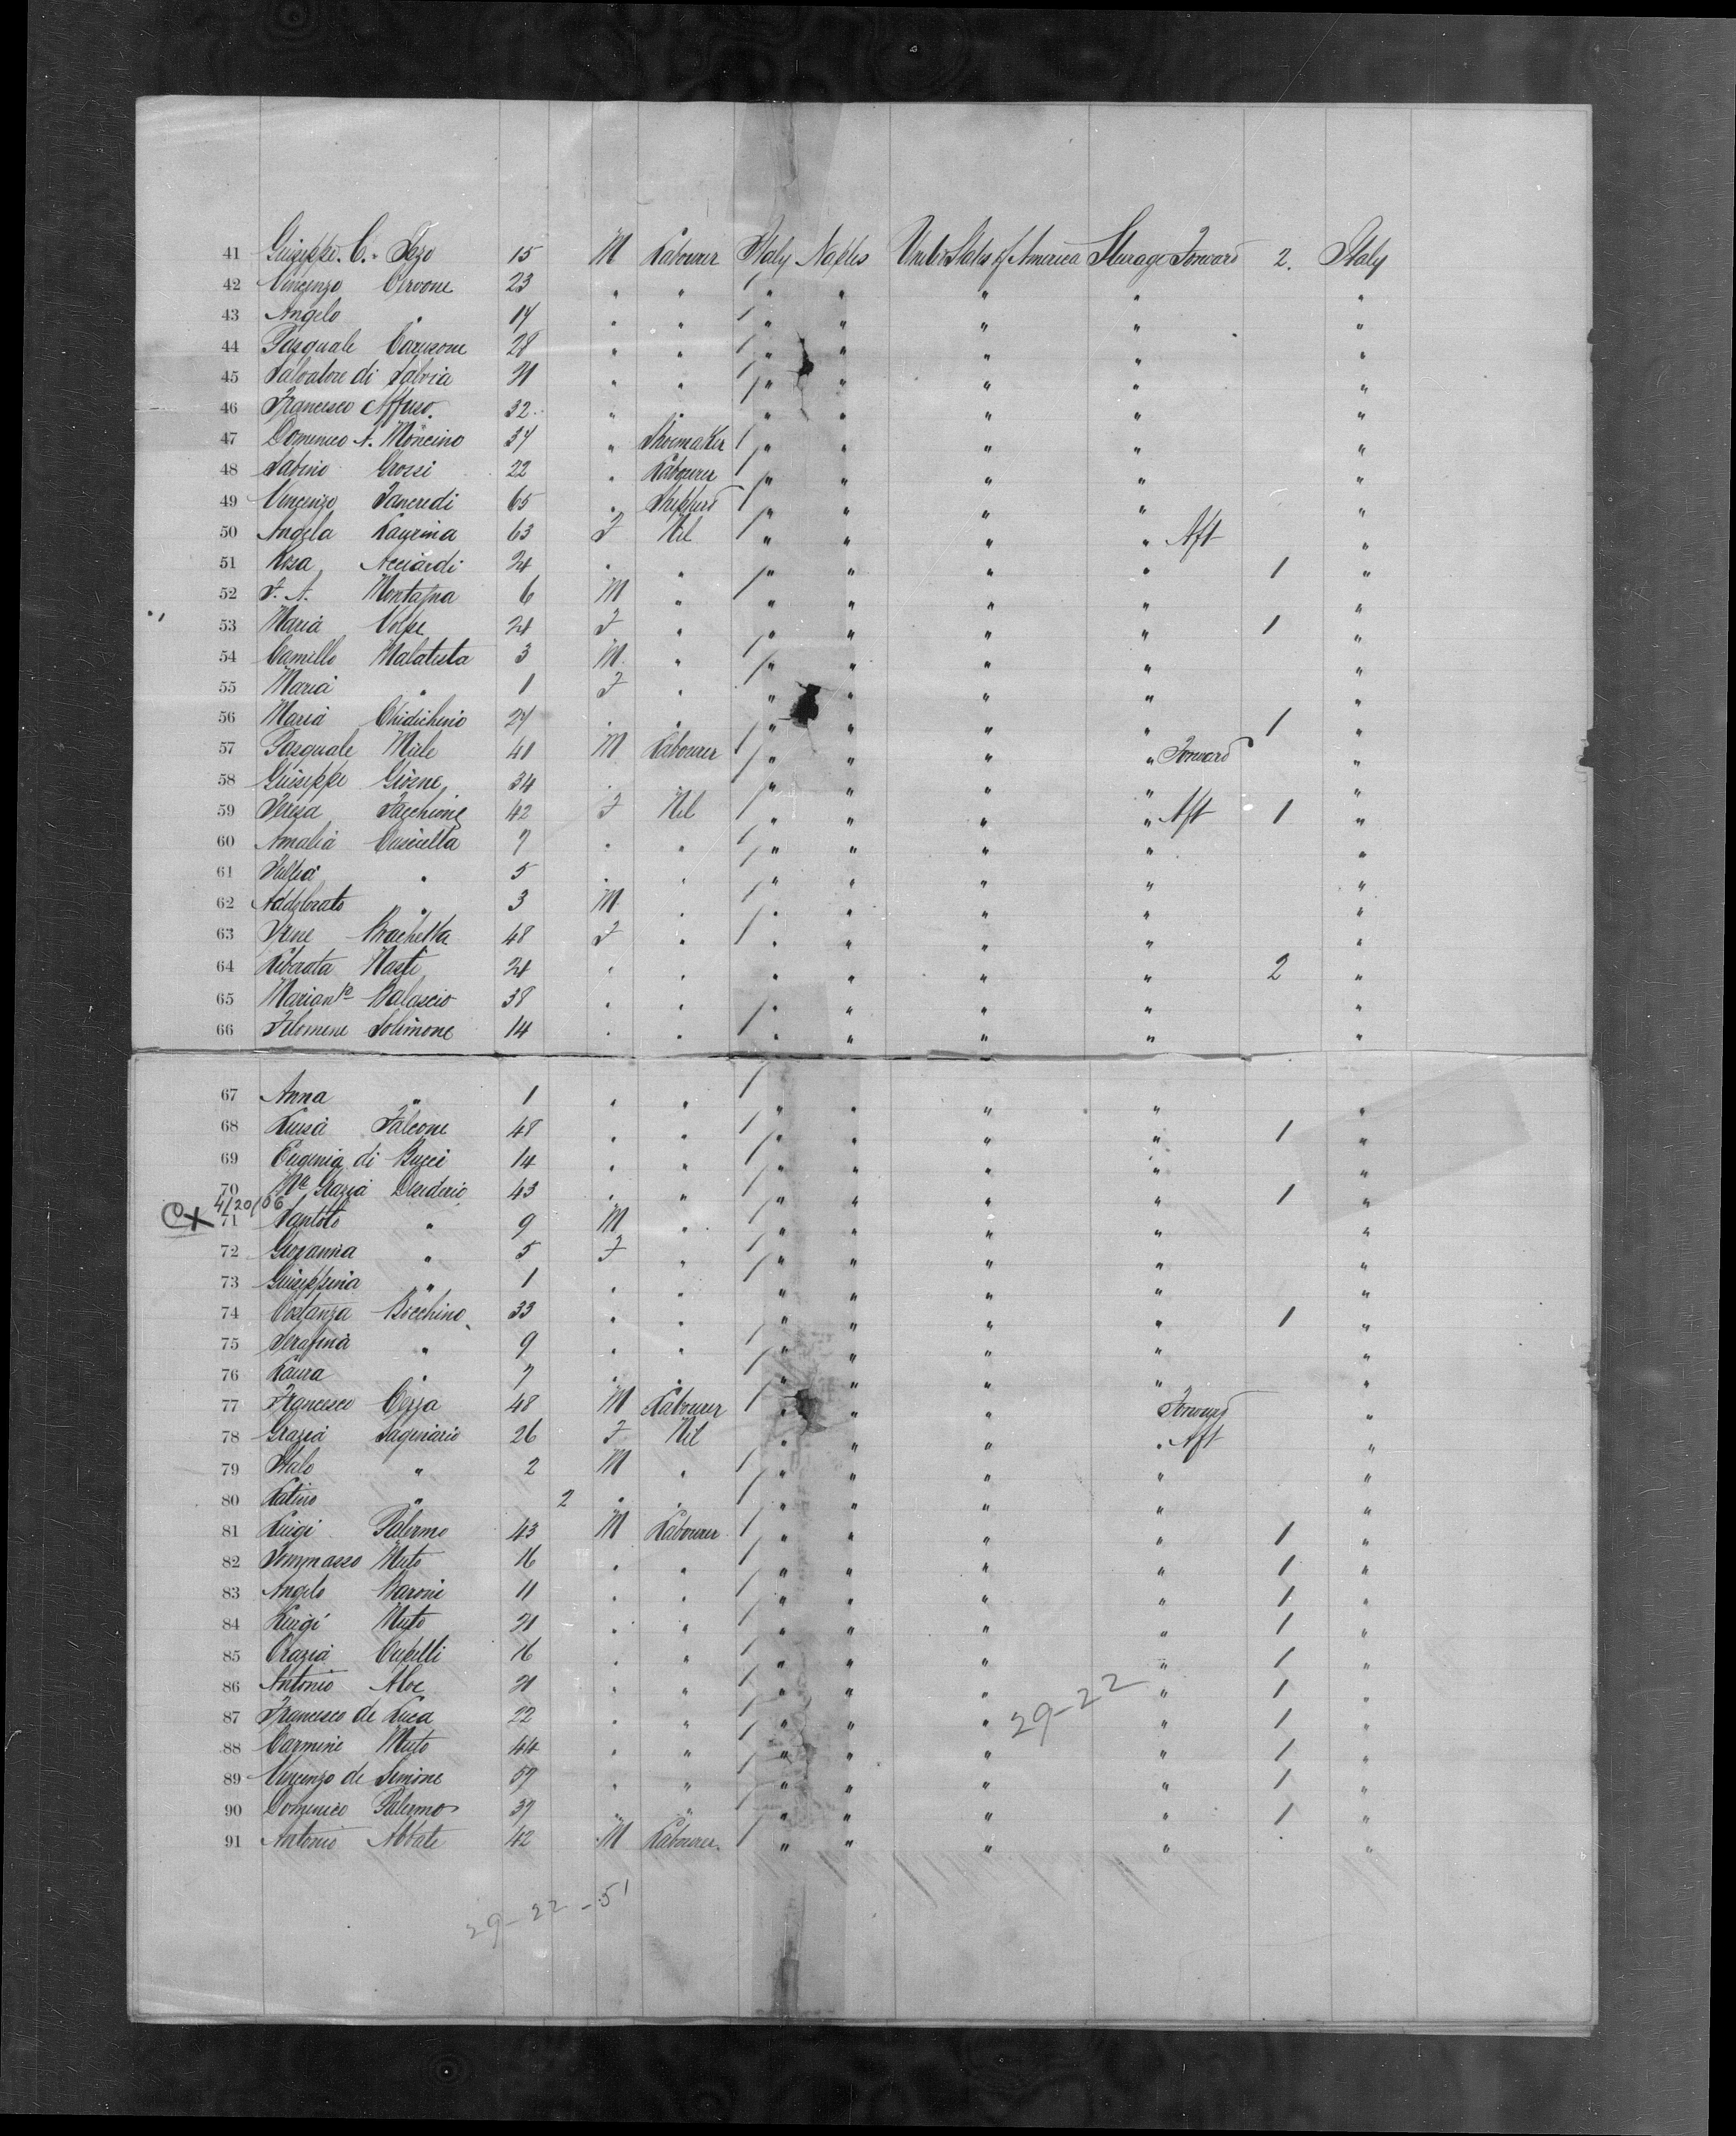 41 Guiseppe. C. Sozo 15 M Labourer Italy Naples United States of America Steerage Forward 2. Italy
42 Vincenzo Cervone 23 " " " " " " "
43 Angelo " 14 " " " " " " "
44 Pasquale Carusone 28 " " " " " " "
45 Salvatore di Salvia 21 " " " " " " "
46 Francesco Affuso. 32 " " " " " " "
47 Domenico A. Moncino 34 " Shoemaker " " " " "
48 Sabino Grossi 22 " Labourer " " " " "
49 Vincenzo Tancredi 65 " Shepherd " " " " "
50 Angela Laurina 63 F Nil " " " " Aft "
51 Rosa Acciardi 24 " " " " " " 1 "
52 F. A. Montagna 6 M " " " " " "
53 Maria Volpe 24 F " " " " " 1 "
54 Camillo Malatesta 3 M " " " " " "
55 Maria " 1 F " " " " " "
56 Maria Chidichino 27 " " " " " " 1 "
57 Pasquale Miele 41 M Labourer " " " " Forward "
58 Guiseppe Giosne 34 " " " " " "
59 Teresa Facchione 42 F Nil " " " " Aft 1 "
60 Amalia Cusciella 7 " " " " " " "
61 " 5 " " " " " " "
62 Addolorato " 3 M " " " " " "
63 Irene Brachetta 48 F " " " " " "
64 Liberata Nasti 24 " " " " " " 2 "
65 Marianta Balascio 38 " " " " " " "
66 Filomene Solimone 14 " " " " " " "
67 Anna " 1 " " " " " " "
68 Luisa Falcone 48 " " " " " " 1 "
69 Eugenia di Bucci 14 " " " " " " "
70 Ma Grazia Desiderio 43 " " " " " " 1 "
4/20/06
CX 71 Santolo " 9 M " " " " " "
72 Giovannia " 5 F " " " " " "
73 Guiseppina " 1 " " " " " " "
74 Costanza Bocchino 33 " " " " " " 1 "
75 Serafina " 9 " " " " " " "
76 Laura " 7 " " " " " " "
77 Francesco Cozza 48 M Labourer " " " Forward "
78 Grazia Saginario 26 F Nil " " " " Aft "
79 Italo " 2 M " " " " " "
80 Latino " 2 " " " " " " "
81 Luigi Palermo 43 M Labourer " " " " 1 "
82 Tommasso Muto 16 " " " " " " 1 "
83 Angelo Baroni 11 " " " " " " 1 "
84 Luigi Muto 21 " " " " " " 1 "
85 Orazia Cupelli 16 " " " " " " 1 "
86 Antonio Aloe 21 " " " " " " 1 "
29-22
87 Francesco de Luca 22 " " " " " " 1 "
88 Carmine Muto 44 " " " " " " 1 "
89 Vincenzo de Simone 57 " " " " " " 1 "
90 Domenico Palermo 37 " " " " " " 1 "
91 Antonio Abbate 42 M Labourer. " " " " "
29-22-51